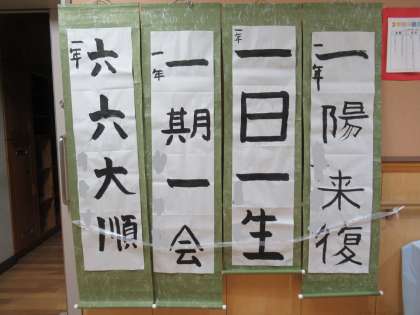 一陽来復
一年
一日一生
二年
一期一会
一年
六六大順
二年